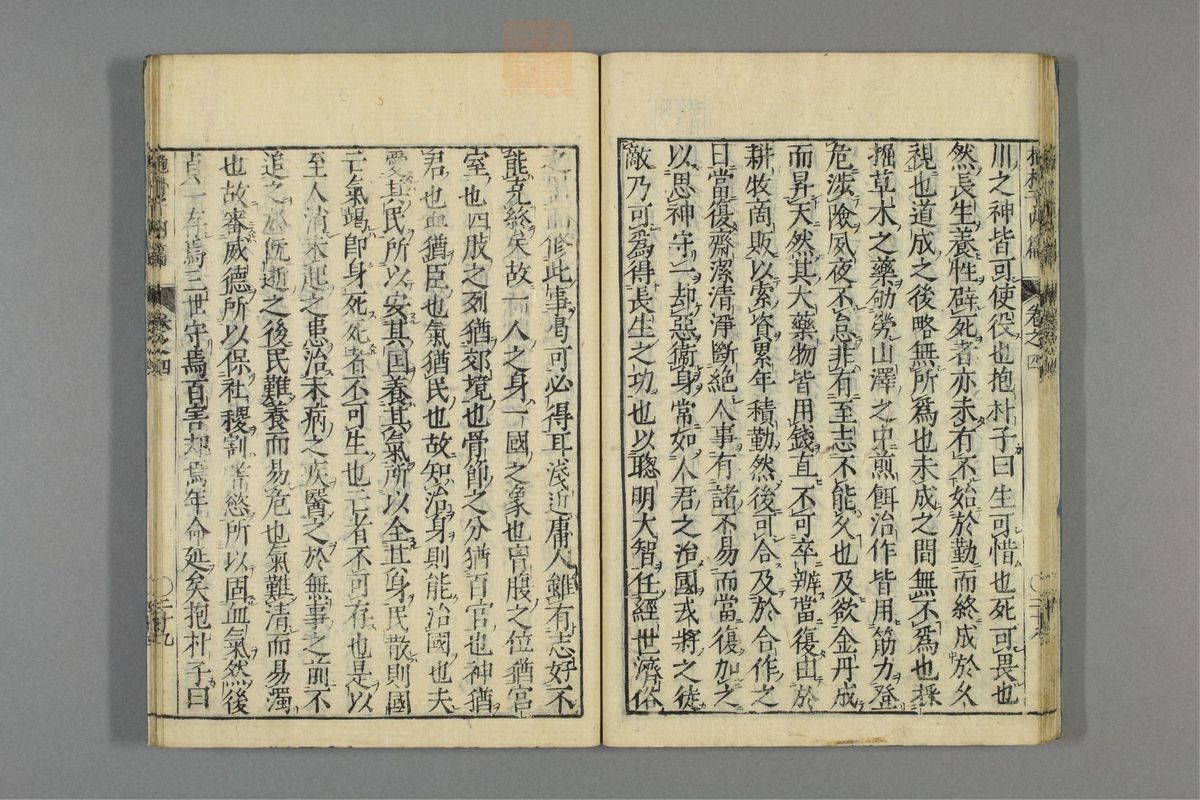 川之神皆可使役也抱朴子曰生可惜也死可畏也
然長生養性辟死者亦未有不始於勤而終成於久
視也道成之後略無所爲也未成之間無不爲也採
掘草木之藥劬勞山澤之中煎餌治作皆用筋力登
危涉險夙夜不怠非有至志不能久也及欲金丹成
而昇天然其大藥物皆用錢直不可卒辨當復由於
耕牧商販以索資累年積勤然後可合及於合作之
日當復齋潔清淨斷絕人事有諸不易而當復加之
以思神守一却惡衛身常如人君之治國戎將之徒
敵乃可爲得長生之功也以聰明大智任經世濟俗
之而修此事乃可必得耳淺近庸人雖有志好不
能克終矣故一人之身一國之象也胷腹之位猶宮
室也四肢之列猶郊境也骨節之分猶百官也神猶
君也血猶臣也氣猶民也故知治身則能治國也夫
愛其民所以安其国養其氣所以全其身民散則國
亡氣竭即身死死者不可生也亡者不可存也是以
至人消未起之患治未病之疾醫之於無事之前不
追之於既逝之後民難養而易危也氣難清而易濁
也故審威德所以保社稷割嗜慾所以固血氣然後
真一存焉三世守焉百害却焉年命延矣抱朴子曰
卷之四
卷之四
二十九